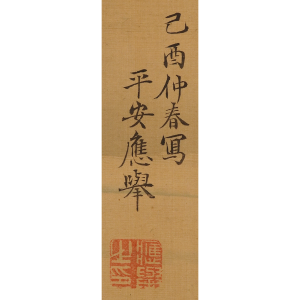 己酉仲春寫
平安應擧
應擧之印